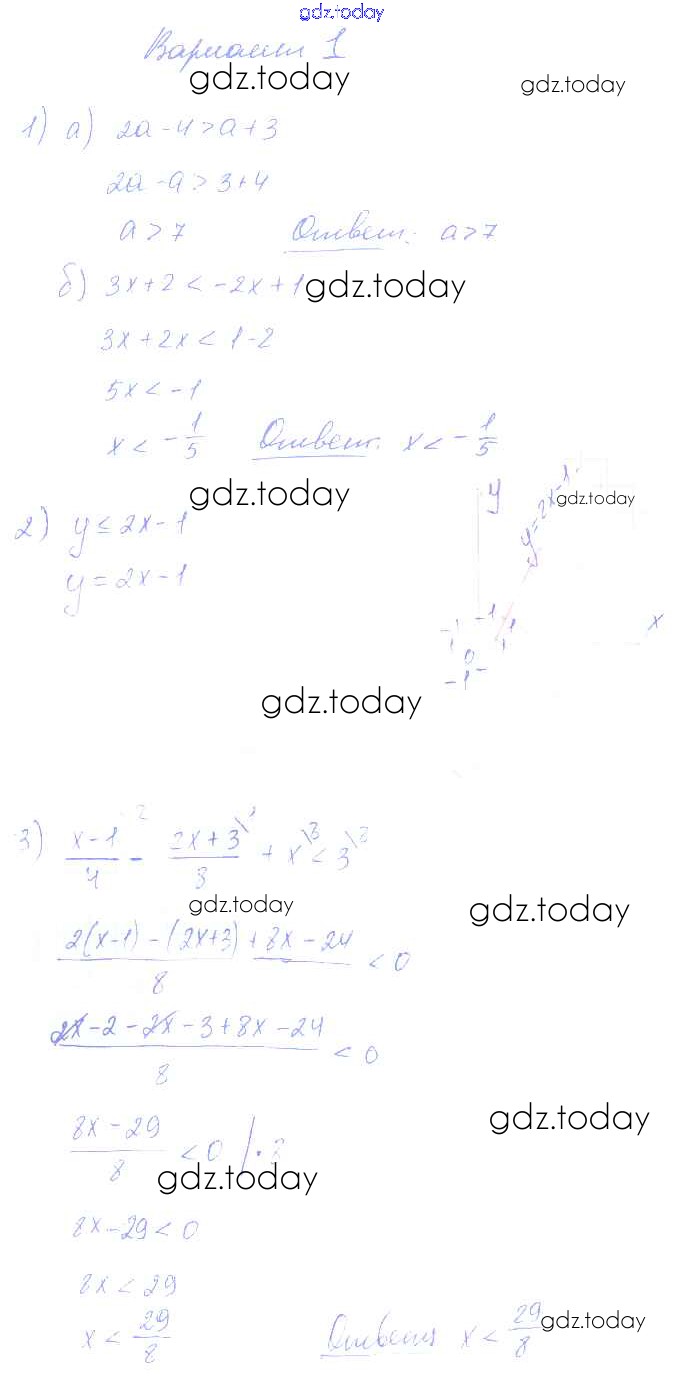 gdz.today
Вариант 1
gdz.today
gdz.today
1) а) 2a - 4 > a + 3
2a - a > 3 + 4
a > 7 Ответ: a > 7
б) 3x + 2 < -2x + 1
gdz.today
3x + 2x < 1 - 2
5x < -1
x < -1/5 Ответ: x < -1/5
gdz.today
gdz.today
2) y ≤ 2x - 1
y = 2x - 1
y
y = 2x - 1
x
-1 1
1 1
0
-1
gdz.today
3) (x - 1)/4 \2 - (2x + 3)/8 \1 + x \8 < 3 \8
gdz.today
gdz.today
(2(x - 1) - (2x + 3) + 8x - 24)/8 < 0
(2x - 2 - 2x - 3 + 8x - 24)/8 < 0
gdz.today
(8x - 29)/8 < 0 | · 8
gdz.today
8x - 29 < 0
8x < 29
x < 29/8 Ответ: x < 29/8
gdz.today